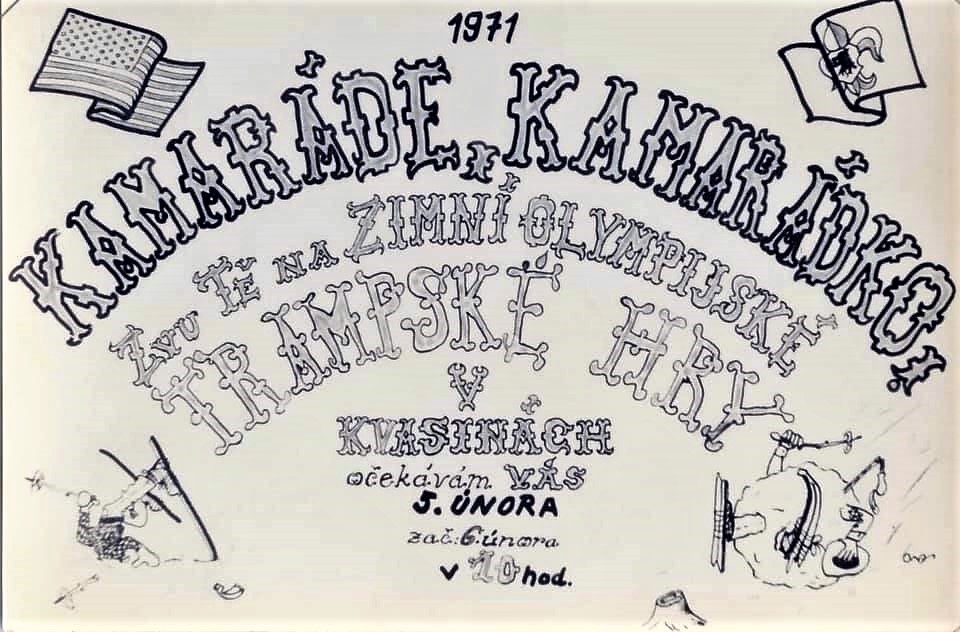 1971
KAMARÁDE, KAMARÁDKO,
ZVU TĚ NA ZIMNÍ OLYMPIJSKÉ
TRAMPSKÉ HRY
V
KVASINÁCH
očekávám VÁS
5. ÚNORA
zač: 6. února
v 10 hod.